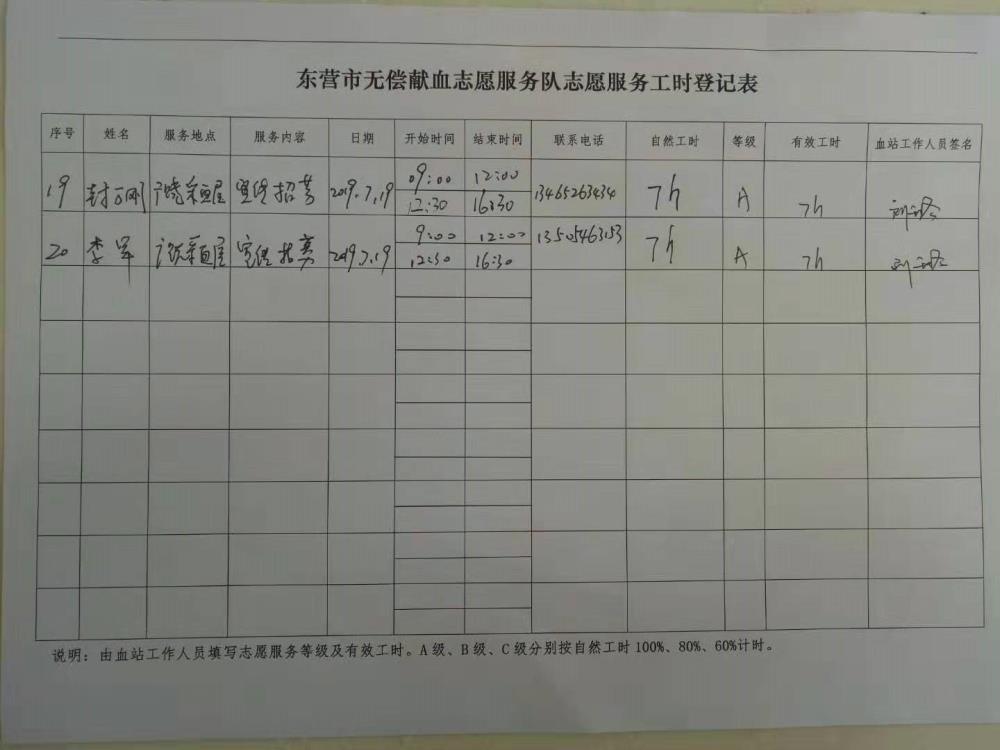 东营市无偿献血志愿服务队志愿服务工时登记表
序号 姓名 服务地点 服务内容 日期 开始时间 结束时间 联系电话 自然工时 等级 有效工时 血站工作人员签名
19 封万刚 采血屋 宣传招募 2019.7.19 09:00 12:00 13465263434 7h A 7h
12:30 16:30
20 李军 采血屋 宣传招募 2019.7.19 9:00 12:00 13505463153 7h A 7h
12:30 16:30
说明：由血站工作人员填写志愿服务等级及有效工时。A级、B级、C级分别按自然工时100%、80%、60%计时。